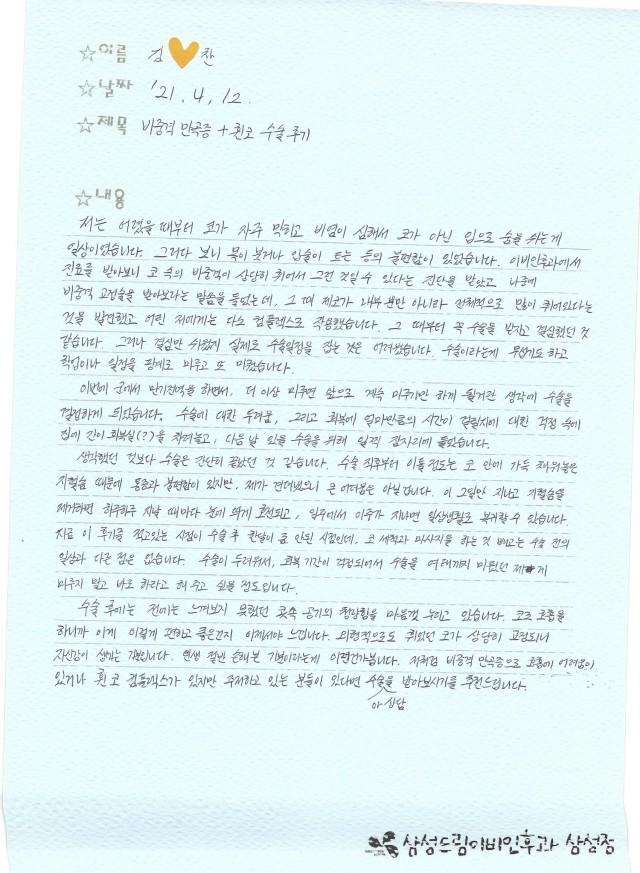 ☆이름 김🧡찬
☆날짜 '21. 4. 12.
☆제목 비중격 만곡증 + 휜코 수술 후기
☆내용
저는 어렸을 때부터 코가 자주 막히고 비염이 심해서 코가 아닌 입으로 숨을 쉬는게
일상이었습니다. 그러다 보니 목이 붓거나 입술이 트는 등의 불편함이 있었습니다. 이비인후과에서
진료를 받아보니 코 속의 비중격이 상당히 휘어서 그런 것일 수 있다는 진단을 받았고 나중에
비중격 교정술을 받아보라는 말씀을 들었는데, 그 때 제코가 내부 뿐만 아니라 전체적으로 많이 휘어있다는
것을 발견했고 어린 저에게는 다소 컴플렉스로 작용했습니다. 그 때부터 꼭 수술을 받자고 결심했던 것
같습니다. 그러나 결심만 세웠지 실제로 수술일정을 잡는 것은 어려웠습니다. 수술이라는게 무섭기도 하고
학업이나 일정을 핑계로 미루고 또 미뤘습니다.
이번에 군에서 만기전역을 하면서, 더 이상 미루면 앞으로 계속 미루기만 하게 될거란 생각에 수술을
결심하게 되었습니다. 수술에 대한 두려움, 그리고 회복에 얼마만큼의 시간이 걸릴지에 대한 걱정 속에
집에 간이 회복실(?)을 차려놓고, 다음날 있을 수술을 위해 일찍 잠자리에 들었습니다.
생각했던 것보다 수술은 간단히 끝났던 것 같습니다. 수술 직후부터 이틀 정도는 코 안에 가득 채워놓은
지혈솜 때문에 통증과 불편함이 있지만, 제가 견뎌냈으니 큰 어려움은 아닐겁니다. 이 고비만 지나고 지혈솜을
제거하면 하루하루 지날 때마다 눈에 띄게 호전되고, 일주에서 이주가 지나면 일상생활로 복귀할 수 있습니다.
지금 이 후기를 적고있는 시점이 수술 후 한달이 좀 안된 시점인데, 코 세척과 마사지를 하는 것 빼고는 수술 전의
일상과 다른 점은 없습니다. 수술이 두려워서, 회복 기간이 걱정되어서 수술을 여태까지 미뤘던 제게
미루지 말고 바로 하라고 해 주고 싶을 정도입니다.
수술 후에는 전에는 느껴보지 못했던 콧속 공기의 청량함을 마음껏 누리고 있습니다. 코로 호흡을
하니까 이게 이렇게 편하고 좋은건지 이제서야 느낍니다. 외형적으로도 휘었던 코가 상당히 교정되니
자신감이 생기는 기분입니다. 인생 절반 손해본 기분이라는게 이런건가봅니다. 저처럼 비중격 만곡증으로 호흡에 어려움이
있거나 휜 코 컴플렉스가 있지만 주저하고 있는 분들이 있다면 수술을 받아보시기를 추천드립니다.
삼성드림이비인후과 삼성점